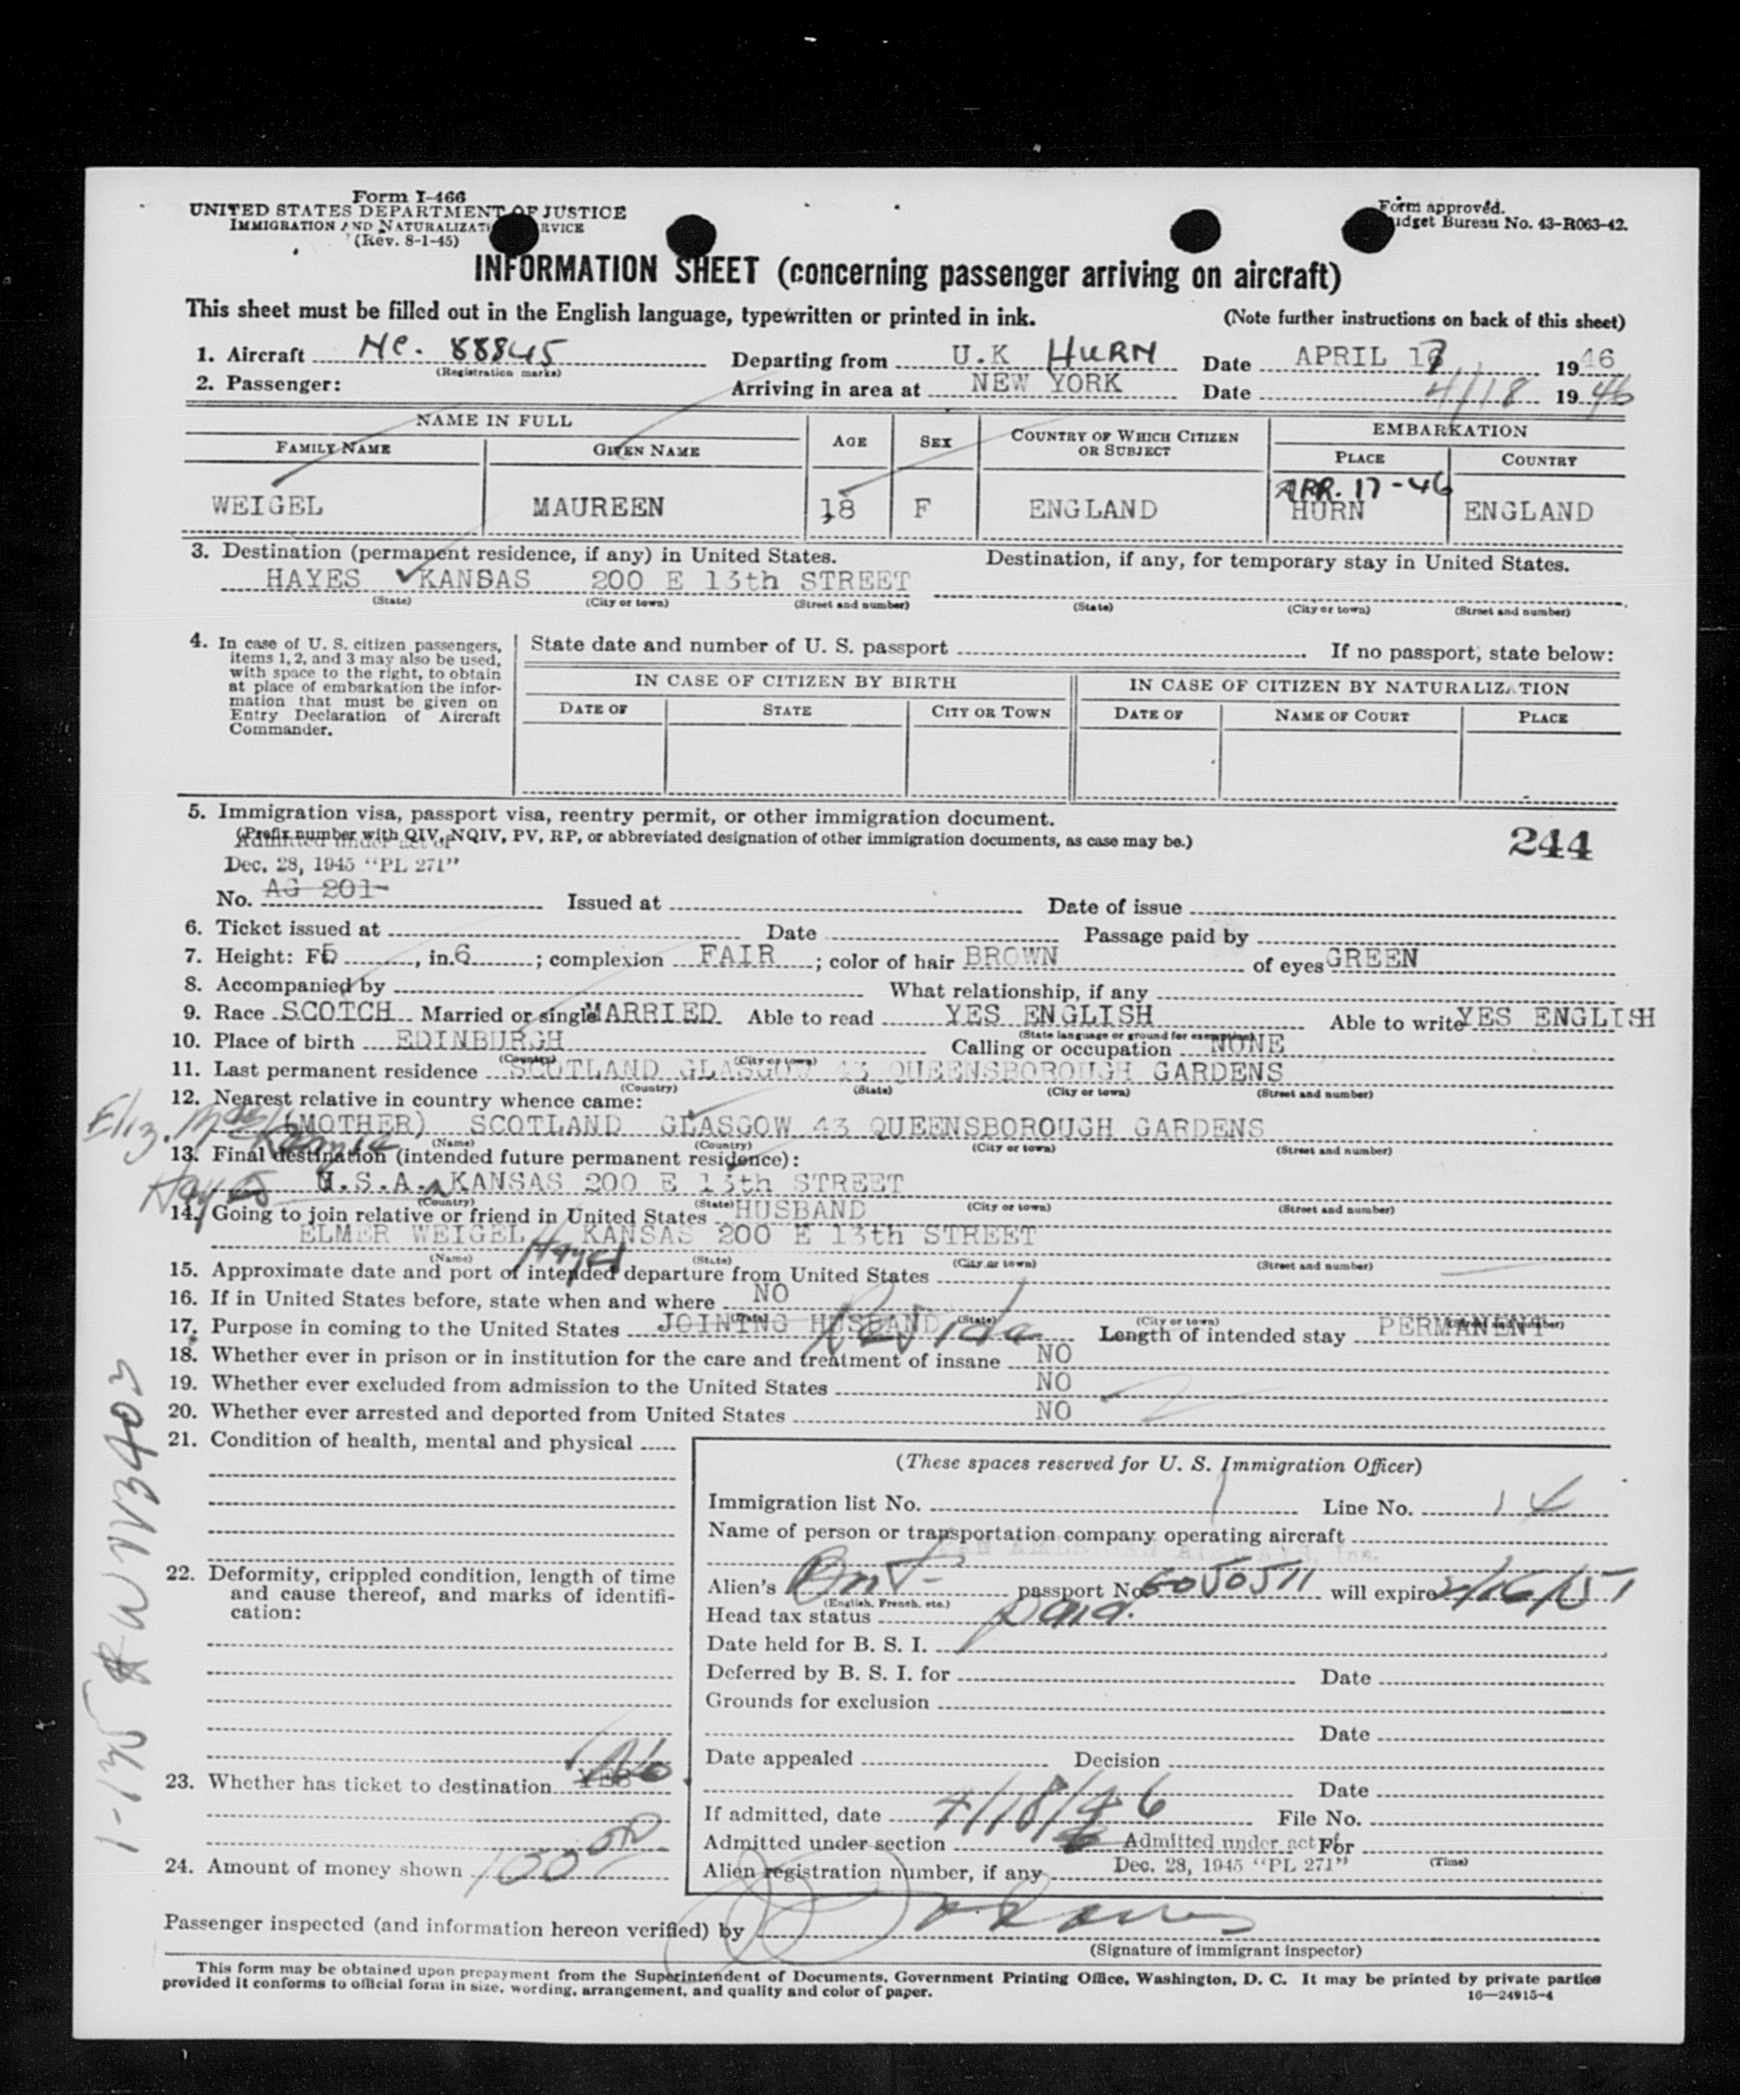 Form I-466
UNITED STATES DEPARTMENT OF JUSTICE
IMMIGRATION AND NATURALIZATI RVICE
(Rev. 8-1-45)
Form approved.
udget Bureau No. 43-R063-42.
INFORMATION SHEET (concerning passenger arriving on aircraft)
This sheet must be filled out in the English language, typewritten or printed in ink. (Note further instructions on back of this sheet)
1. Aircraft NC. 88845 Departing from U.K HURN Date APRIL 17 1946
(Registration marks)
2. Passenger: Arriving in area at NEW YORK Date 4/18 1946
NAME IN FULL AGE SEX COUNTRY OF WHICH CITIZEN OR SUBJECT EMBARKATION
FAMILY NAME GIVEN NAME PLACE COUNTRY
APR. 17-46
WEIGEL MAUREEN 18 F ENGLAND HURN ENGLAND
3. Destination (permanent residence, if any) in United States. Destination, if any, for temporary stay in United States.
HAYES KANSAS 200 E 13th STREET
(State) (City or town) (Street and number) (State) (City or town) (Street and number)
4. In case of U. S. citizen passengers, items 1, 2, and 3 may also be used, with space to the right, to obtain at place of embarkation the information that must be given on Entry Declaration of Aircraft Commander.
State date and number of U. S. passport If no passport, state below:
IN CASE OF CITIZEN BY BIRTH IN CASE OF CITIZEN BY NATURALIZATION
DATE OF STATE CITY OR TOWN DATE OF NAME OF COURT PLACE
5. Immigration visa, passport visa, reentry permit, or other immigration document.
(Prefix number with QIV, NQIV, PV, RP, or abbreviated designation of other immigration documents, as case may be.)
244
Admitted under act of
Dec. 28, 1945 "PL 271"
No. AG 201- Issued at Date of issue
6. Ticket issued at Date Passage paid by
7. Height: Ft. 5, in. 6; complexion FAIR; color of hair BROWN of eyes GREEN
8. Accompanied by What relationship, if any
9. Race SCOTCH Married or single MARRIED Able to read YES ENGLISH Able to write YES ENGLISH
(State language or ground for exemption)
10. Place of birth EDINBURGH Calling or occupation NONE
(Country) (City or town)
11. Last permanent residence SCOTLAND GLASGOW 43 QUEENSBOROUGH GARDENS
(Country) (State) (City or town) (Street and number)
12. Nearest relative in country whence came:
Eliz. (MOTHER) SCOTLAND GLASGOW 43 QUEENSBOROUGH GARDENS
(Name) (Country) (City or town) (Street and number)
13. Final destination (intended future permanent residence):
Hays Kansas U.S.A. KANSAS 200 E 13th STREET
(Country) (State) (City or town) (Street and number)
14. Going to join relative or friend in United States HUSBAND
ELMER WEIGEL Hays KANSAS 200 E 13th STREET
(Name) (State) (City or town) (Street and number)
15. Approximate date and port of intended departure from United States
16. If in United States before, state when and where NO
(Date) (State) (City or town) (Street and number)
17. Purpose in coming to the United States JOINING HUSBAND Reside Length of intended stay PERMANENT
18. Whether ever in prison or in institution for the care and treatment of insane NO
19. Whether ever excluded from admission to the United States NO
20. Whether ever arrested and deported from United States NO
21. Condition of health, mental and physical
22. Deformity, crippled condition, length of time and cause thereof, and marks of identification:
23. Whether has ticket to destination YES No
24. Amount of money shown 100 00
(These spaces reserved for U. S. Immigration Officer)
Immigration list No. 1 Line No. 14
Name of person or transportation company operating aircraft
PAN AMERICAN AIRWAYS, Inc.
Alien's Brit passport No. will expire
(English, French, etc.)
Head tax status paid.
Date held for B. S. I.
Deferred by B. S. I. for Date
Grounds for exclusion
Date
Date appealed Decision
Date
If admitted, date 4/18/46 File No.
Admitted under section Admitted under act of For
(Time)
Alien registration number, if any Dec. 28, 1945 "PL 271"
Passenger inspected (and information hereon verified) by
(Signature of immigrant inspector)
This form may be obtained upon prepayment from the Superintendent of Documents, Government Printing Office, Washington, D. C. It may be printed by private parties
provided it conforms to official form in size, wording, arrangement, and quality and color of paper.
16—24915-4